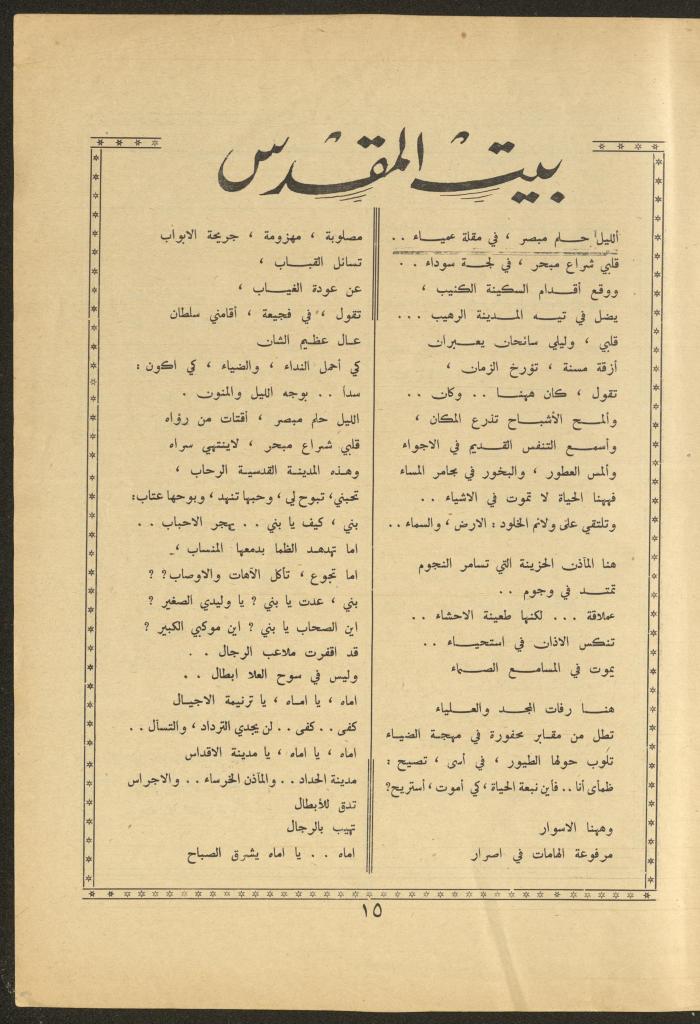 بيت المقدس
الليل حلم مبصر ، في مقلة عمياء . .
قلبي شراع مبحر ، في لجة سوداء . .
ووقع أقدام السكينة الكئيب ،
يضل في تيه المدينة الرهيب . . .
قلبي ، وليلي سانحان يعبران
أزقة مسنة ، تؤرخ الزمان ،
تقول ، كان ههنا . . وكان . .
وألمح الأشباح تذرع المكان ،
وأسمع التنفس القديم في الاجواء
وألمس العطور ، والبخور في مجامر المساء
فههنا الحياة لا تموت في الاشياء . .
وتلتقي على ولائم الخلود : الارض ، والسماء . .
هنا المآذن الحزينة التي تسامر النجوم
تمتد في وجوم . .
عملاقة . . . لكنها طعينة الاحشاء . .
تنكس الاذان في استحياء . .
يموت في المسامع الصماء
هنا رفات المجد والعلياء
تطل من مقابر محفورة في مهجة الضياء
تلوب حولها الطيور ، في أسى ، تصيح :
ظمأى أنا . . فأين نبعة الحياة ، كي أموت ، أستريح ؟
وههنا الاسوار
مرفوعة الهامات في اصرار
مصلوبة ، مهزومة ، جريحة الابواب
تسائل القباب ،
عن عودة الغياب ،
تقول ، في فجيعة ، أقامني سلطان
عال عظيم الشان
كي أحمل النداء ، والضياء ، كي اكون :
سداً . . بوجه الليل والمنون .
الليل حلم مبصر ، أقتات من رؤاه
قلبي شراع مبحر ، لاينتهي سراه
وهذه المدينة القدسية الرحاب ،
تحبني ، تبوح لي ، وحبها تنهد ، وبوحها عتاب :
بني ، كيف يا بني . . يهجر الاحباب . .
اما تهدهد الظما بدمعها المنساب ،
اما تجوع ، تأكل الآهات والاوصاب ؟ ؟
بني ، عدت يا بني ؟ يا وليدي الصغير ؟
اين الصحاب يا بني ؟ اين موكبي الكبير ؟
قد اقفرت ملاعب الرجال . .
وليس في سوح العلا ابطال . .
اماه ، يا اماه ، يا ترنيمة الاجيال
كفى . . كفى . . لن يجدي الترداد ، والتسآل . .
اماه ، يا اماه ، يا مدينة الاقداس
مدينة الحداد . . والمآذن الخرساء . . والاجراس
تدق للأبطال
تهيب بالرجال
اماه . . يا اماه يشرق الصباح
١٥